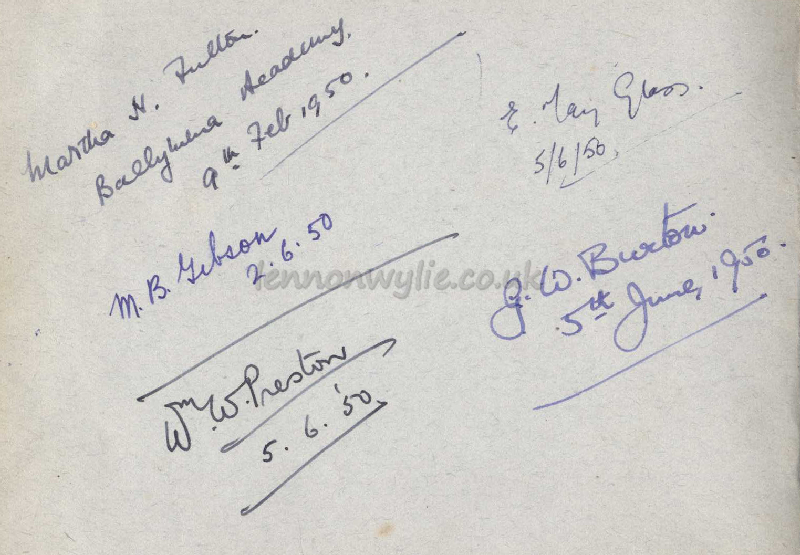 Martha H. Fulton.
Ballymena Academy.
9th Feb 1950.
E. May Glass.
5/6/50.
M. B. Gibson
2.6.50
lennonwylie.co.uk
G. W. Burton.
5th June, 1950.
Wm. W. Preston
5. 6. '50.